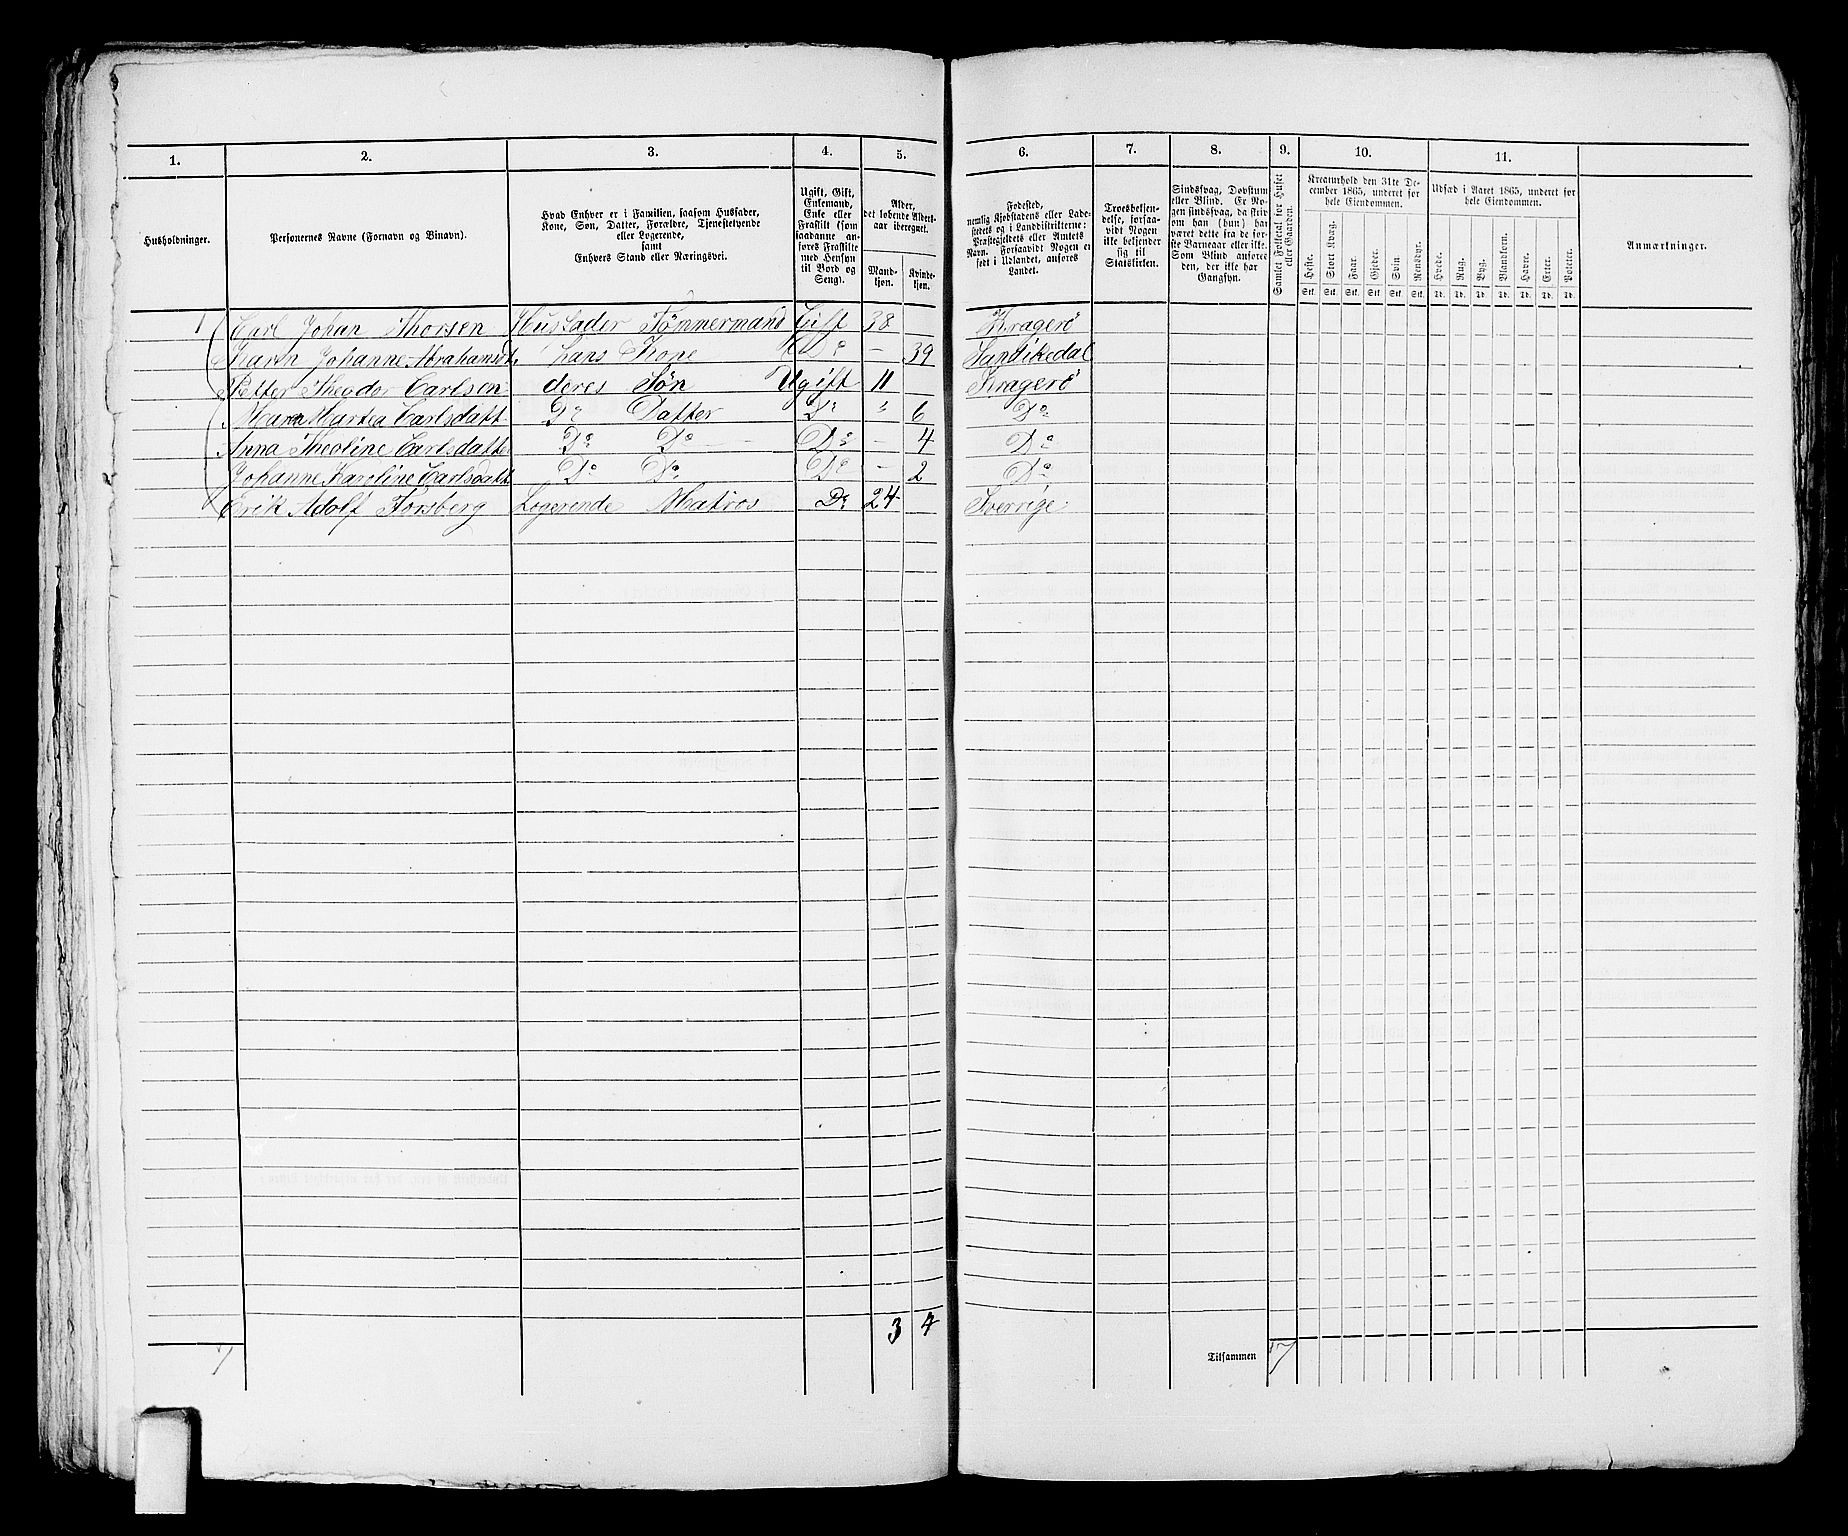 1. 2. 3. 4. 5. 6. 7. 8. 9. 10. 11.
Husholdninger.
Personernes Navne (Fornavn og Binavn).
Hvad Enhver er i Familien, saasom Husfader,
Kone, Søn, Datter, Forældre, Tjenestetyende
eller Logerende,
samt
Enhvers Stand eller Næringsvei.
Ugift, Gift,
Enkemand,
Enke eller
Fraskilt (som
saadanne an-
føres Fraskilte
med Hensyn
til Bord og
Seng).
Alder,
det løbende Alders-
aar iberegnet.
Mand-
kjøn.
Kvinde-
kjøn.
Fødested,
nemlig Kjøbstadens eller Lade-
stedets og i Landdistrikterne:
Præstegjeldets eller Amtets
Navn. Forsaavidt Nogen er
født i Udlandet, anføres
Landet.
Troesbekjen-
delse, forsaa-
vidt Nogen
ikke bekjender
sig til
Statskirken.
Sindssvag, Døvstum
eller Blind. Er No-
gen sindssvag, da skri-
ves om han (hun) har
været dette fra de før-
ste Barneaar eller ikke.
Som Blind anføres
den, der ikke har
Gangsyn.
Samlet Folketal for Huset
eller Gaarden.
Kreaturhold den 31te De-
cember 1865, underet for
hele Eiendommen.
Heste. Stort Kvæg. Faar. Gjeder. Svin. Rensdyr.
Stk. Stk. Stk. Stk. Stk. Stk.
Udsæd i Aaret 1865, underet for
hele Eiendommen.
Hvede. Rug. Byg. Blandkorn. Havre. Erter. Poteter.
Td. Td. Td. Td. Td. Td. Td.
Anmærkninger.
1 Carl Johan Thorsen Husfader Tömmermand Gift 38 Kragerö
Karen Johanne Abrahamsdt. hans Kone Do - 39 Sannikedal
Petter Theodor Carlsen deres Sön Ugift 11 Kragerö
Maren Martea Carlsdatt. Do Datter Do " 6 Do
Anna Theoline Carlsdatter Do Do Do - 4 Do
Johanne Karoline Carlsdatt. Do Do Do - 2 Do
Erik Adolf Forsberg Logerende Matros Do 24 Sverrige
3 4
7 Tilsammen 7